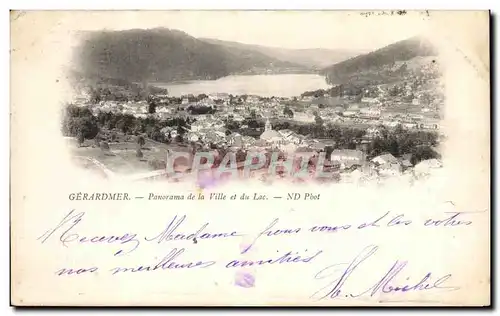 GÉRARDMER. — Panorama de la Ville et du Lac. — ND Phot
CARTHAPIE
Recevez, Madame, pour vous et les vôtres
nos meilleures amitiés
St. Michel